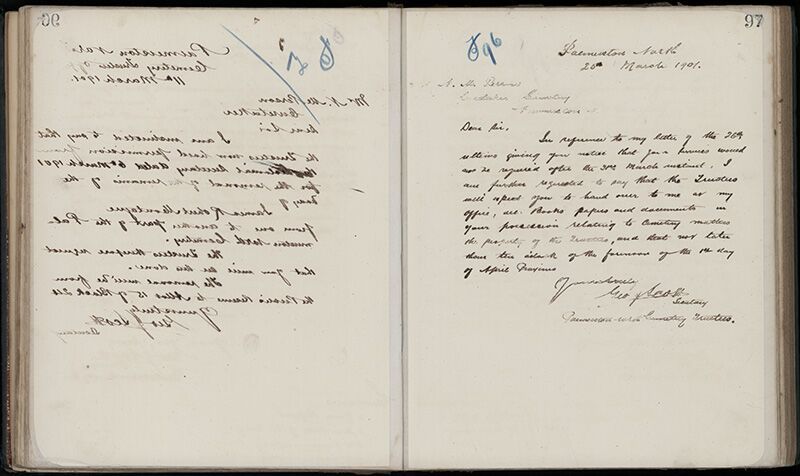 96
Palmerston North
Cemetery Trustees
11th March 1901
Caretaker
Dear Sir
I am instructed to say that
the Trustees now have permission from
the Colonial Secretary dated 6 March 1901
for the removal of the remains of the
Body of
James Robert
from one to another part of the Pal-
merston North Cemetery.
The Trustees therefore request
that you will see this done.
The removal will be from
the Reserve to Allot 15 of Block
Yours truly
Geo J Scott
Secretary
97
Palmerston North
26th March 1901.
Cemetery
Palmerston N
Dear Sir.
In reference to my letter of the 26th
ultimo giving you notice that your services would
not be required after the 31st March instant. I
am further requested to say that the Trustees
will expect you to hand over to me at my
office, all Books papers and documents in
your possession relating to Cemetery matters
the property of the Trustees, and that not later
than ten o'clock of the forenoon of the 1st day
of April Proximo
Yours truly
Geo J Scott
Secretary
Palmerston North Cemetery Trustees.